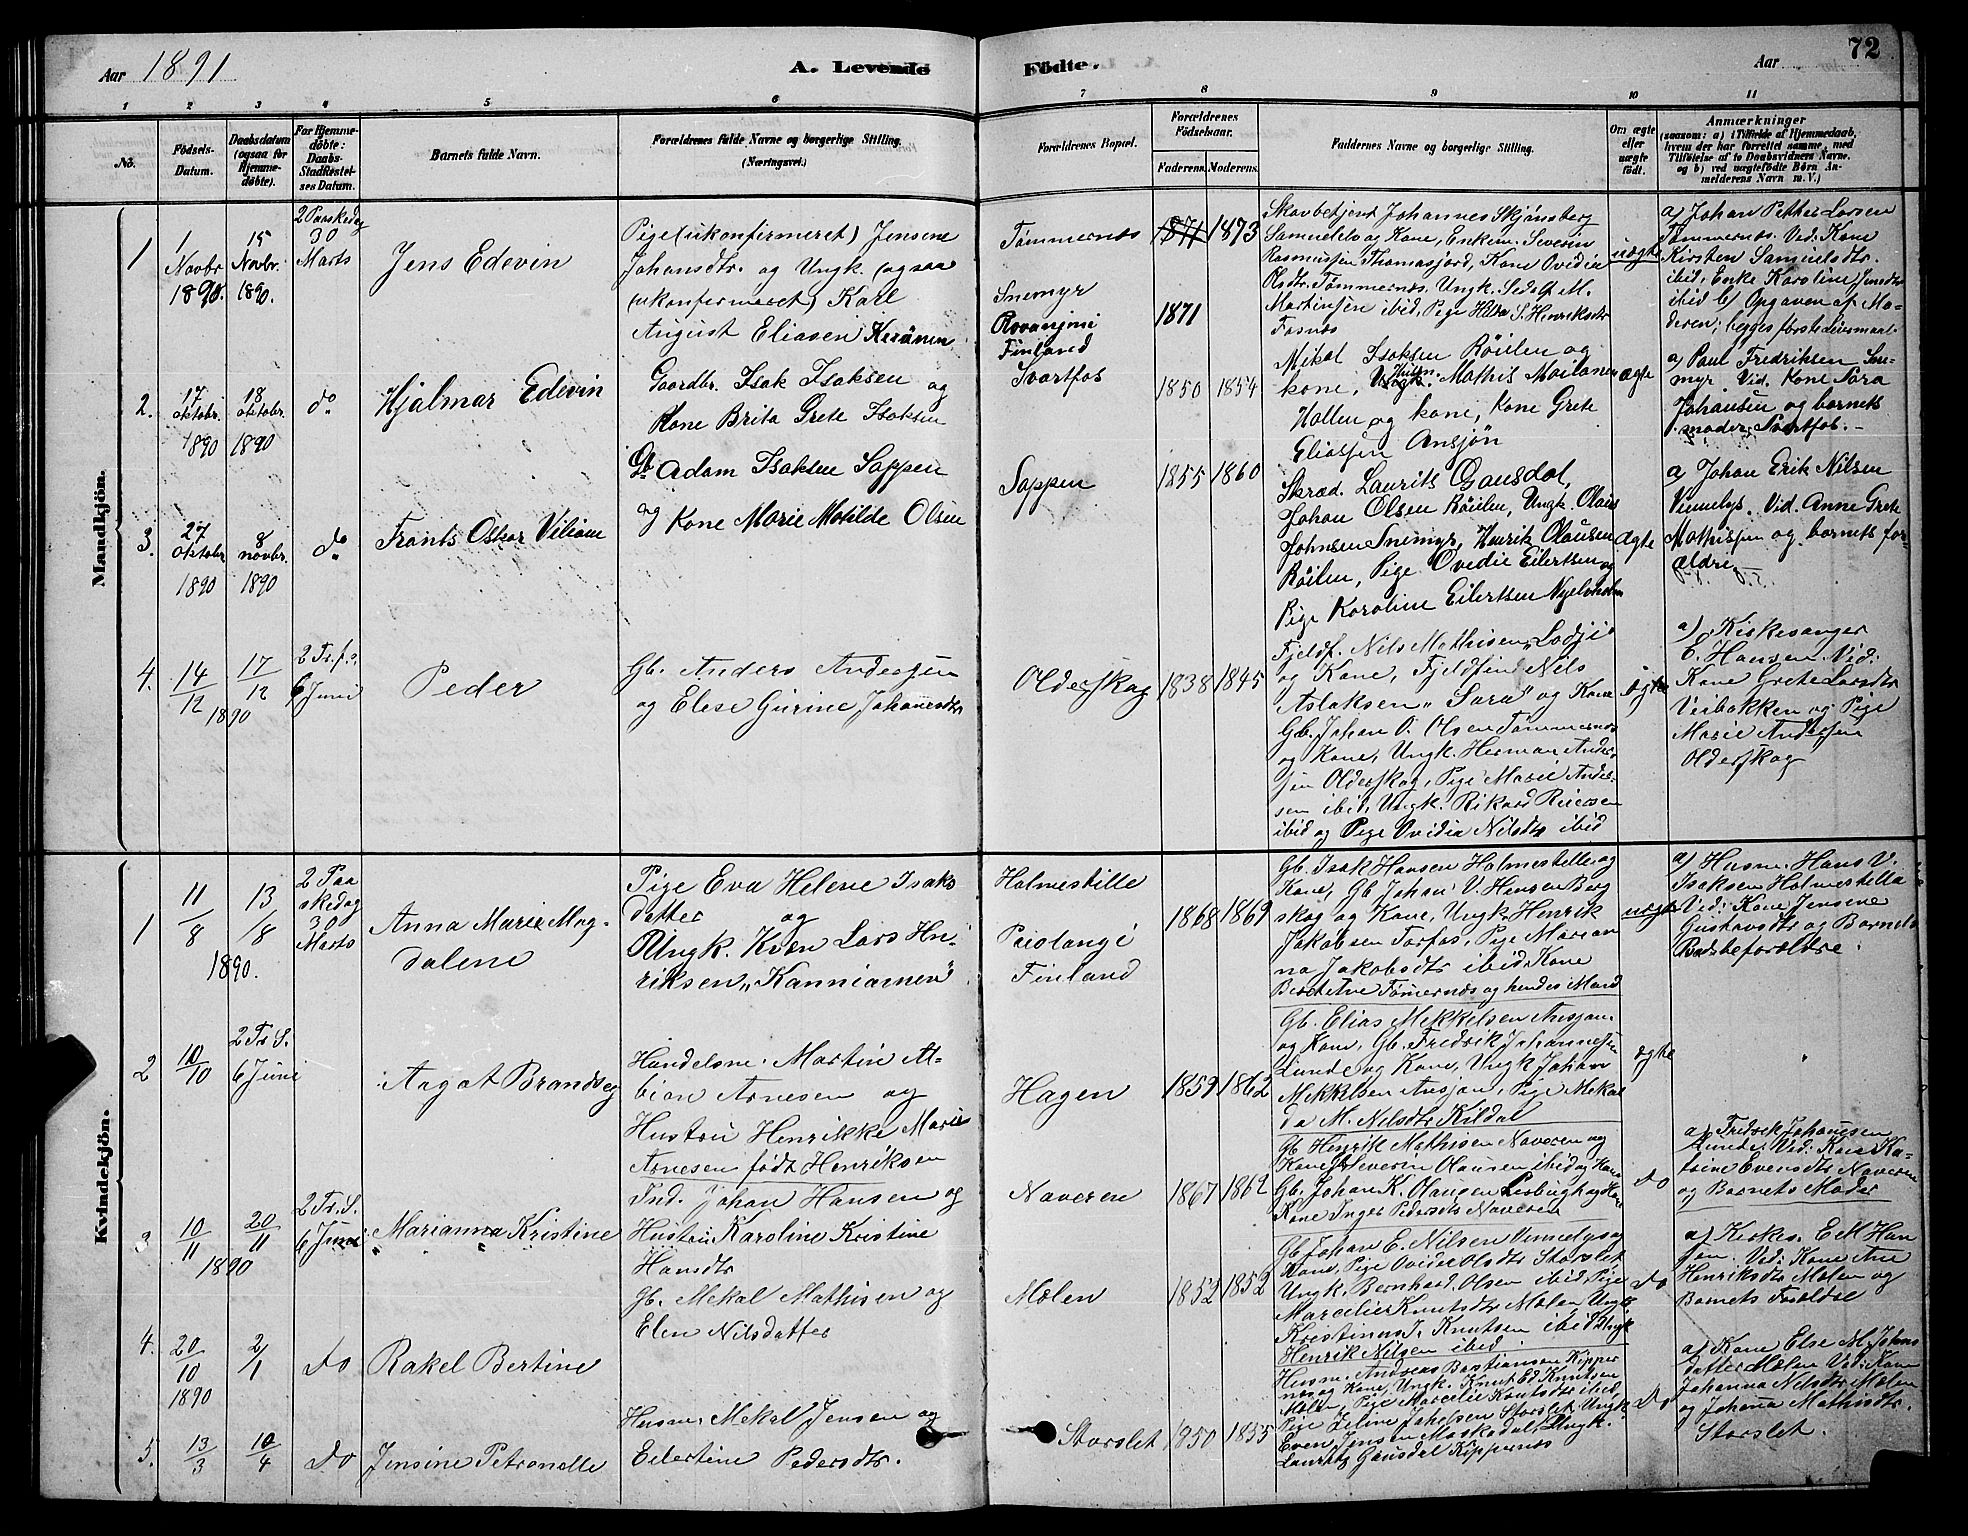 Aar 1891
A. Levende
Födte.
Aar
72
1 2 3 4 5 6 7 8 9 10 11
No.
Födsels-Datum.
Daabsdatum (ogsaa for Hjemme-döbte).
For Hjemme-döbte: Daabs-Stadfestel-ses Datum.
Barnets fulde Navn.
Forældrenes fulde Navne og borgerlige Stilling. (Næringsvei.)
Forældrenes Bopæl.
Forældrenes Födselsaar.
Faderens. Moderens.
Faddernes Navne og borgerlige Stilling.
Om ægte eller uægte födt.
Anmærkninger
(saasom: a) i Tilfælde af Hjemmedaab, hvem der har forrettet samme, med Tilföielse af to Daabsvidners Navne, og b) ved uægtefödte Börn An-melderens Navn m.V.)
Mandkjön.
1
1 Novbr 1890.
15 Novbr. 1890.
2 Paaskedag 30 Marts
Jens Edevin
Pige (ukonfirmeret) Jensine
Johansdtr. og Ungk. (ogsaa
ukonfirmeret) Karl
August Eliasen Keränen
Tømmernes
Snemyr
Rovanjmi
Finland
1871 1873
1871
Skovbetjent Johannes Skjønsberg
Samuelelv og Kone, Enkem. Severin
Rasmussen Thomasjord, Kone Ovidia
Olsdtr. Tømmernes. Ungk. Sedolf M.
Martinsen ibid, Pige Hilda S. Henriksdtr
Fosnes
uægte
a) Johan Petter Larsen
Tømmernes. Vid. Kone
Kirsten Samuelsdtr.
ibid, Enke Karoline Jensdtr
ibid b) Opgaven af Mo-
deren; begges første leiermaal.
2.
17 oktobr. 1890
18 oktobr. 1890
do.
Hjalmar Edevin
Gaardbr. Isak Isaksen og
Kone Brita Grete Isaksen
Svartfos
1850 1854
Mikal Isaksen Røiilen og
kone, Husm. Mathis Moilanen
Hallen og kone, Kone Grete
Eliassen Ansjøn
ægte
a) Paul Fredriksen Sne-
myr. Vid. Kone Sara
Johansen og barnets
moder, Svartfos.
3.
27 oktobr. 1890
8 novbr. 1890
do.
Frants Oskar Viliam
Gb. Adam Isaksen Sappen
og Kone Marie Matilde Olsen
Sappen
1855 1860
Skræd. Laurits Gausdal,
Johan Olsen Røiilen, Ungk Olaus
Johnsen Snemyr, Henrik Olausen
Røiilen, Pige Ovedie Eilertsen og
Pige Karoline Eilertsen Nyelvholm
ægte
a) Johan Erik Nilsen
Vinnelys. Vid. Anne Grete
Mathissen og barnets for-
ældre.
4.
14/12 1890
17/12
2 Tr. f.
6 Juni
Peder
Gb. Anders Anderssen
og Elese Gurine Johannesdtr
Olderskog
1838 1845
Fjeldf. Nils Mathisen „Lodji"
og Kone, Fjeldfin Nils
Aslaksen „Sara" og Kone
Gb. Johan O. Olsen Tømmernes
og Kone, Ungk. Herman Ander-
sen Olderskog, Pige Marie Ander-
sen ibid, Ungk. Rikard Reiersen
ibid og Pige Ovidia Nilsdtr ibid
ægte
a) Kirkesanger
E. Hansen Vid.
Kone Grete Larsdtr
Veibakken og Pige
Marie Anderssen
Olderskog
Kvindekjön.
1
11/8 1890.
13/8
2 Paaskedag 30 Marts
Anna Marie Mag-
dalene
Pige Eva Helene Isaks
datter og
Ungk. Kvæn Lars Hn-
riksen „Kanniainen"
Holmestille
Paiolangi
Finland
1868 1869
Gb. Isak Hansen Holmestille og
Kone, Gb Johan V. Hansen Borg
skog og Kone, Ungk Henrik
Jakobsen Torfos, Pige Marian
na Jakobsdtr ibid Kone
Berit Ane Tømernes og hendes Mand
uægte
a) Husm. Hans V.
Isaksen Holmestilla
Vid: Kone Jensene
Gustavsdtr og Barnets
Bedsteforældre.
2
10/10
2 Tr S.
6 Juni
Aagot Brandseg
Handelsm. Martin Al-
bian Arnesen og
Hustru Henrikke Marie
Arnesen født Henriksen
Hagen
1859 1862
Gb. Elias Mekkelsen Ansjøn
og Kone, Gb. Fredrik Johannessen
Lunde og Kone, Ungk Johan
Mekkelsen Ansjøn, Pige Mekal
da M. Nilsdtr Kildal
ægte
3
10/11 1890
20/11
2 Tr. S.
6 Juni
Marianna Kristine
Ind. Johan Hansen og
Hustru Karoline Kristine
Hansdtr
Naveren
1867 1862
Gb Henrik Mathisen Naveren og
Kone, Severin Olausen ibid og Kone
Gb. Johan K. Olausen og Kone
Kone Inger Pedersdtr Naveren
do
a) Fredrik Johannesen
Lunde. Vid: Kone Ka-
trine Evensdtr Naveren
og Barnets Moder
4.
20/10 1890
2/1
do
Rakel Bertine
Gb. Mekal Mathisen og
Elen Nilsdatter
Mælen
1852 1852
Gb Johan E. Nilsen Vinnelys og
Kone, Pige Ovidie Olsdtr Storslet
Ungk. Bernhard Olsen ibid, Pige
Marcelie Knutsdtr Mælen Ungk.
Kristinus I. Knutsen ibid Ungk
Henrik Nilsen ibid
do
a) Kirkes. Erik Han
sen. Vid: Kone Ane
Henriksdtr Mælen og
Barnets Forældre
5.
13/3
10/4
do
Jensine Petronelle
Husm. Mekal Jensen og
Eilertine Pedersdtr.
Storslet
1850 1855
Husm. Andreas Bastiansen Kipper
nes og Kone, Ungk. Knut Ed. Knutsen
Mælen, Pige Marcelie Knutsdtr ibid,
Pige Eline Jakobsen Storslet, Ungk.
Even Jensen Maskedal, Ungk.
Lauritz Gausdal Kippernes
do
a) Kone Else M. Johans
datter Mælen Vid: Kone
Johanna Nilsdtr Mælen
og Johana Mathisdtr.
Storslet.